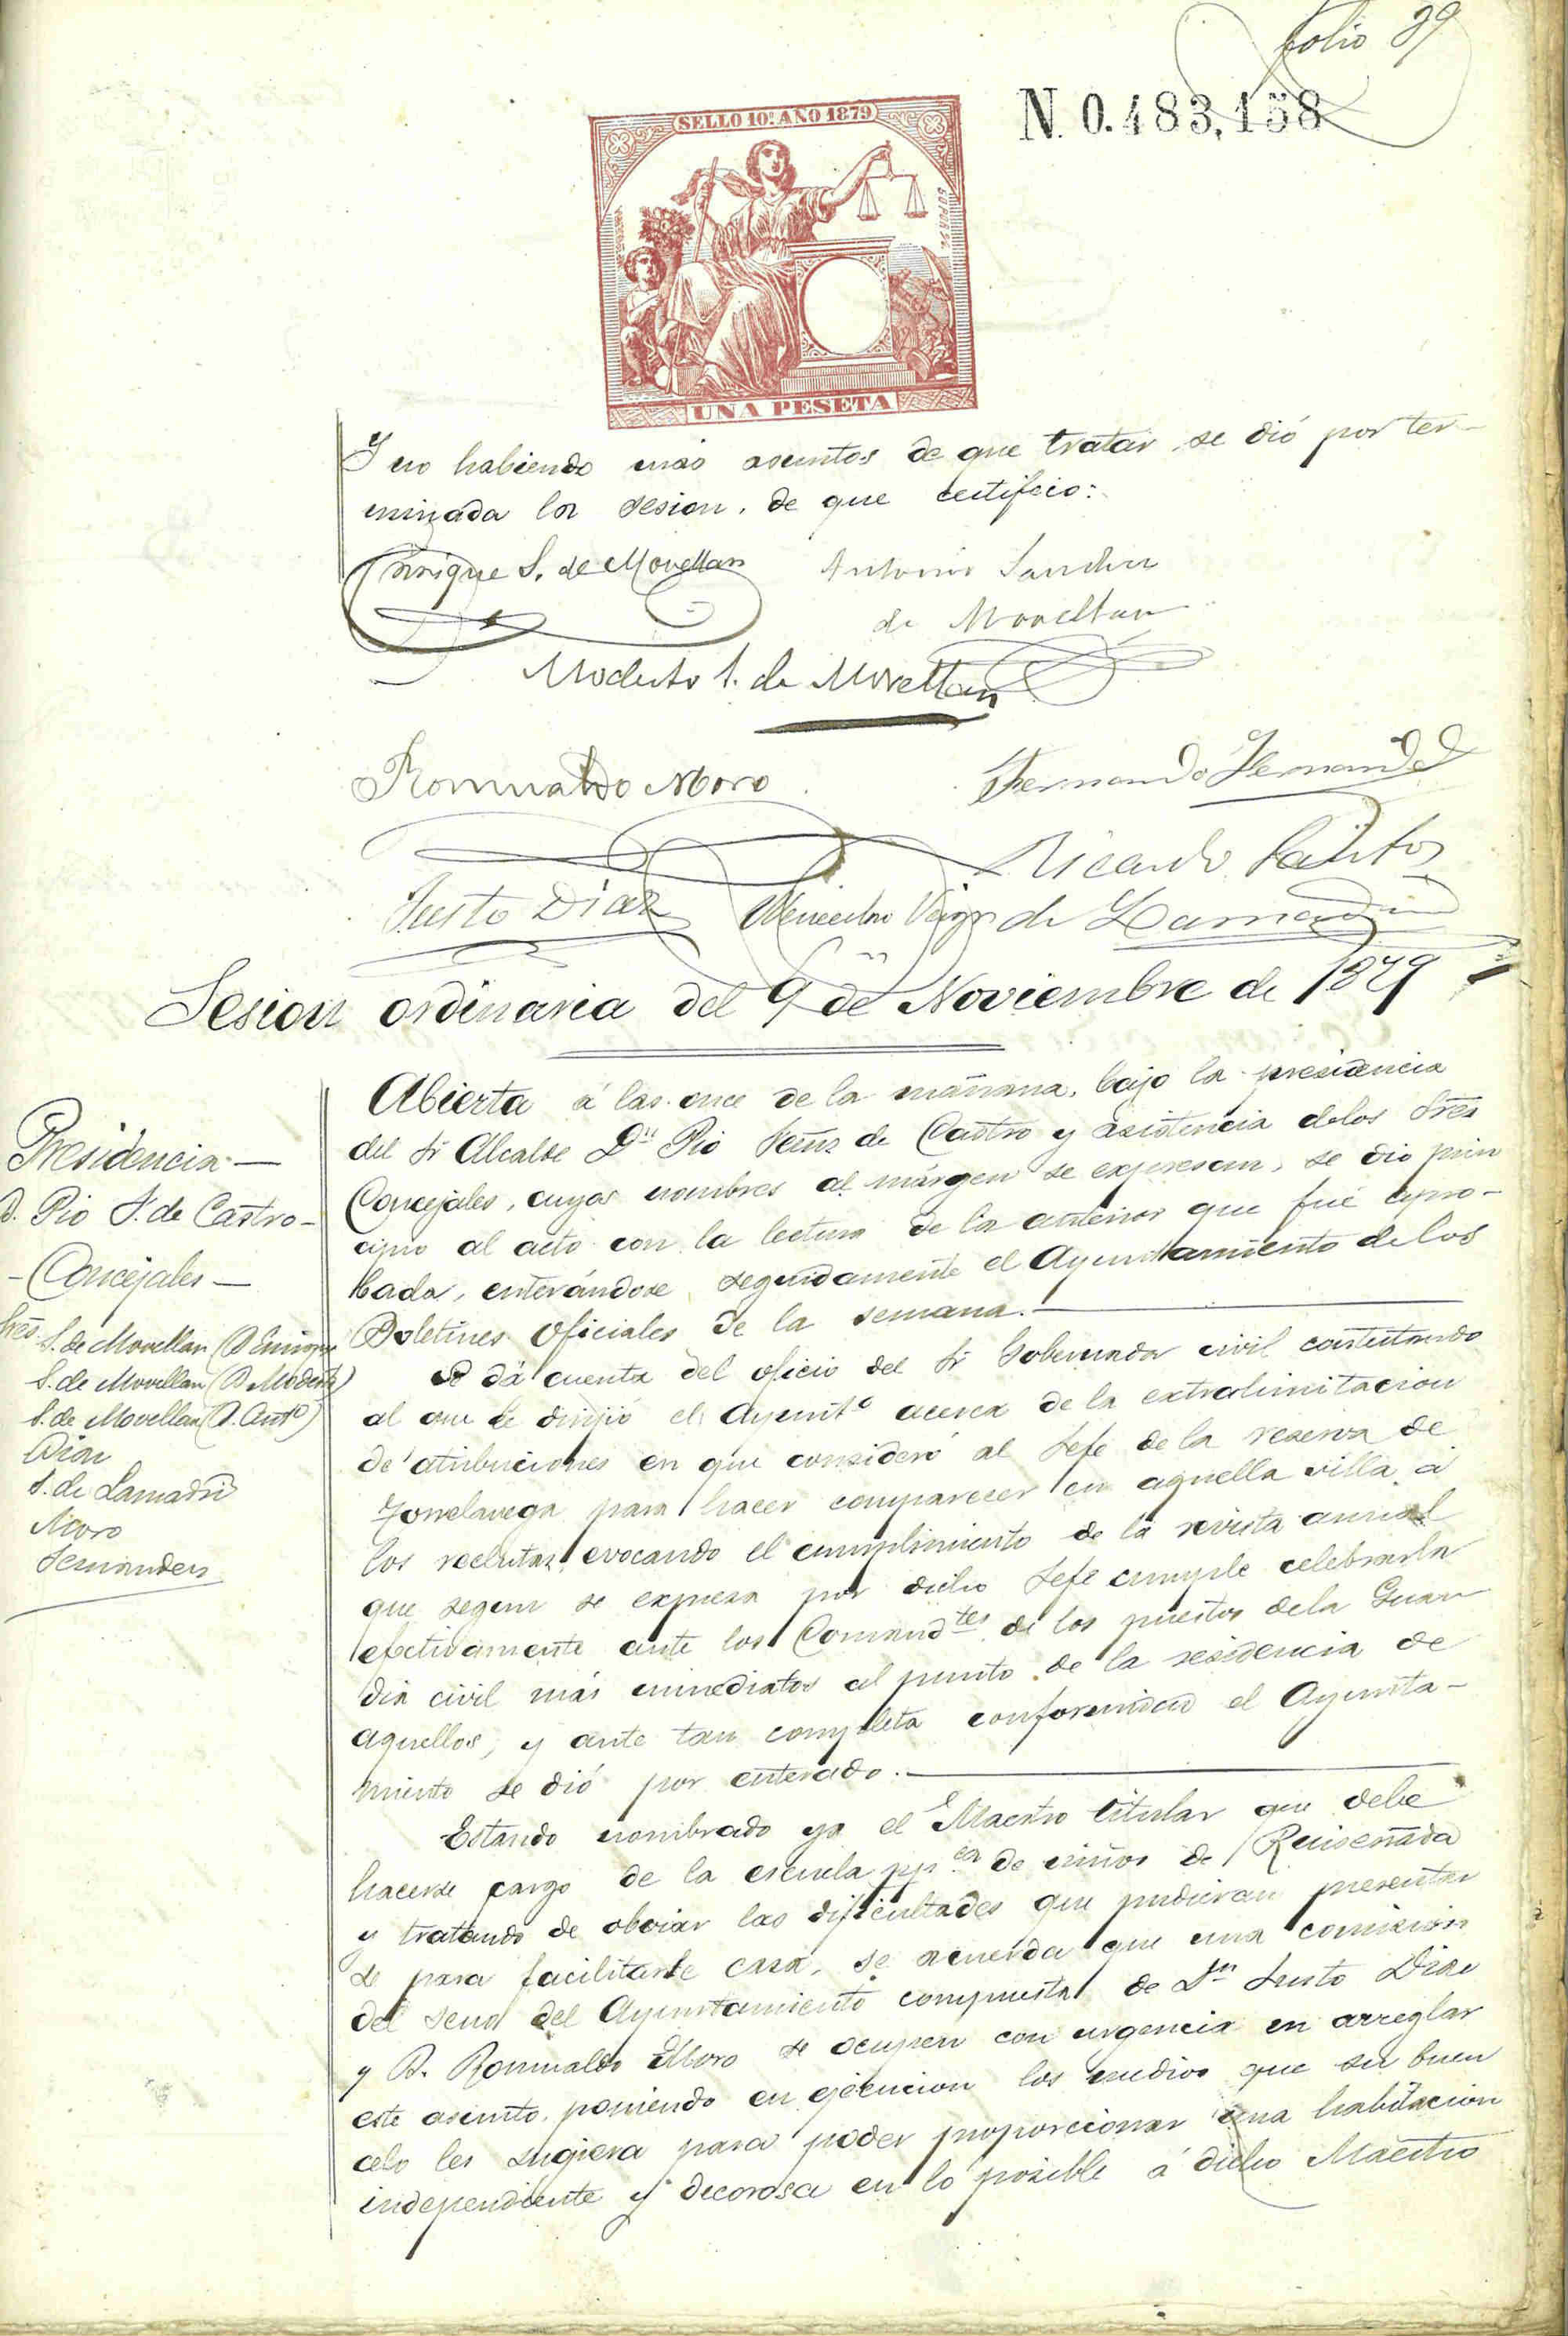 folio 39
N. 0.483,158
SELLO 10º AÑO 1879
UNA PESETA
Y no habiendo más asuntos de que tratar se dió por ter-
minada la sesion, de que certifico:
Enrique S. de Movellan
Antonio Sanchez
de Movellan
Modesto S. de Movellan
Romualdo Moro
Fernando Fernandez
Ricardo Santos
Justo Diaz
de Lamadrid
Sesion ordinaria del 9 de Noviembre de 1879
Presidencia—
D. Pio S. de Castro-
-Concejales-
Sres. S. de Movellan (D Enrique
S. de Movellan (D Modesto)
S. de Movellan (D. Antº)
Diaz
S. de Lamadrid
Moro
Fernandez
Abierta á las once de la mañana, bajo la presidencia
del Sr Alcalde Dn Pio Sanz de Castro y asistencia delos Sres
Concejales, cuyos nombres al márgen se expresan, se dio prin
cipio al acto con la lectura de la anterior que fué apro-
bada, enterándose seguidamente el Ayuntamiento de los
Boletines Oficiales de la semana.
Se dá cuenta del oficio del Sr Gobernador civil contestando
al que le dirijió el Ayuntº acerca de la extralimitacion
de atribuciones en que consideró al Jefe de la reserva de
Torrelavega para hacer comparecer en aquella villa á
los reclutas evocando el cumplimiento de la revista anual
que segun se expresa por dicho Jefe cumple celebrarla
efectivamente ante los Comandtes de los puestos dela Guar
dia civil más inmediatos al punto de la residencia de
aquellos, y ante tan completa conformidad el Ayunta-
miento se dió por enterado.
Estando nombrado ya el Maestro titular que debe
hacerse cargo de la escuela ppca de niños de Ruiseñada
y tratando de obviar las dificultades que pudieran presentar
se para facilitarle casa, se acuerda que una comision
del seno del Ayuntamiento compuesta de Dn Justo Diaz
y D. Romualdo Moro se ocupen con urgencia en arreglar
este asunto, poniendo en ejecucion los medios que su buen
celo les sugiera para poder proporcionar una habitacion
independiente y decorosa en lo posible á dicho Maestro